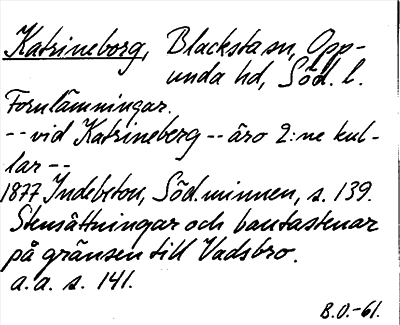 Katrineborg, Blacksta sn, Opp-
unda hd, Söd. l.
Fornlämningar.
-- vid Katrineberg -- äro 2:ne kul-
lar --
1877 Indebetou, Söd.minnen, s. 139.
Stensättningar och bautastenar
på gränsen till Vadsbro.
a.a. s. 141.
B.O.-61.